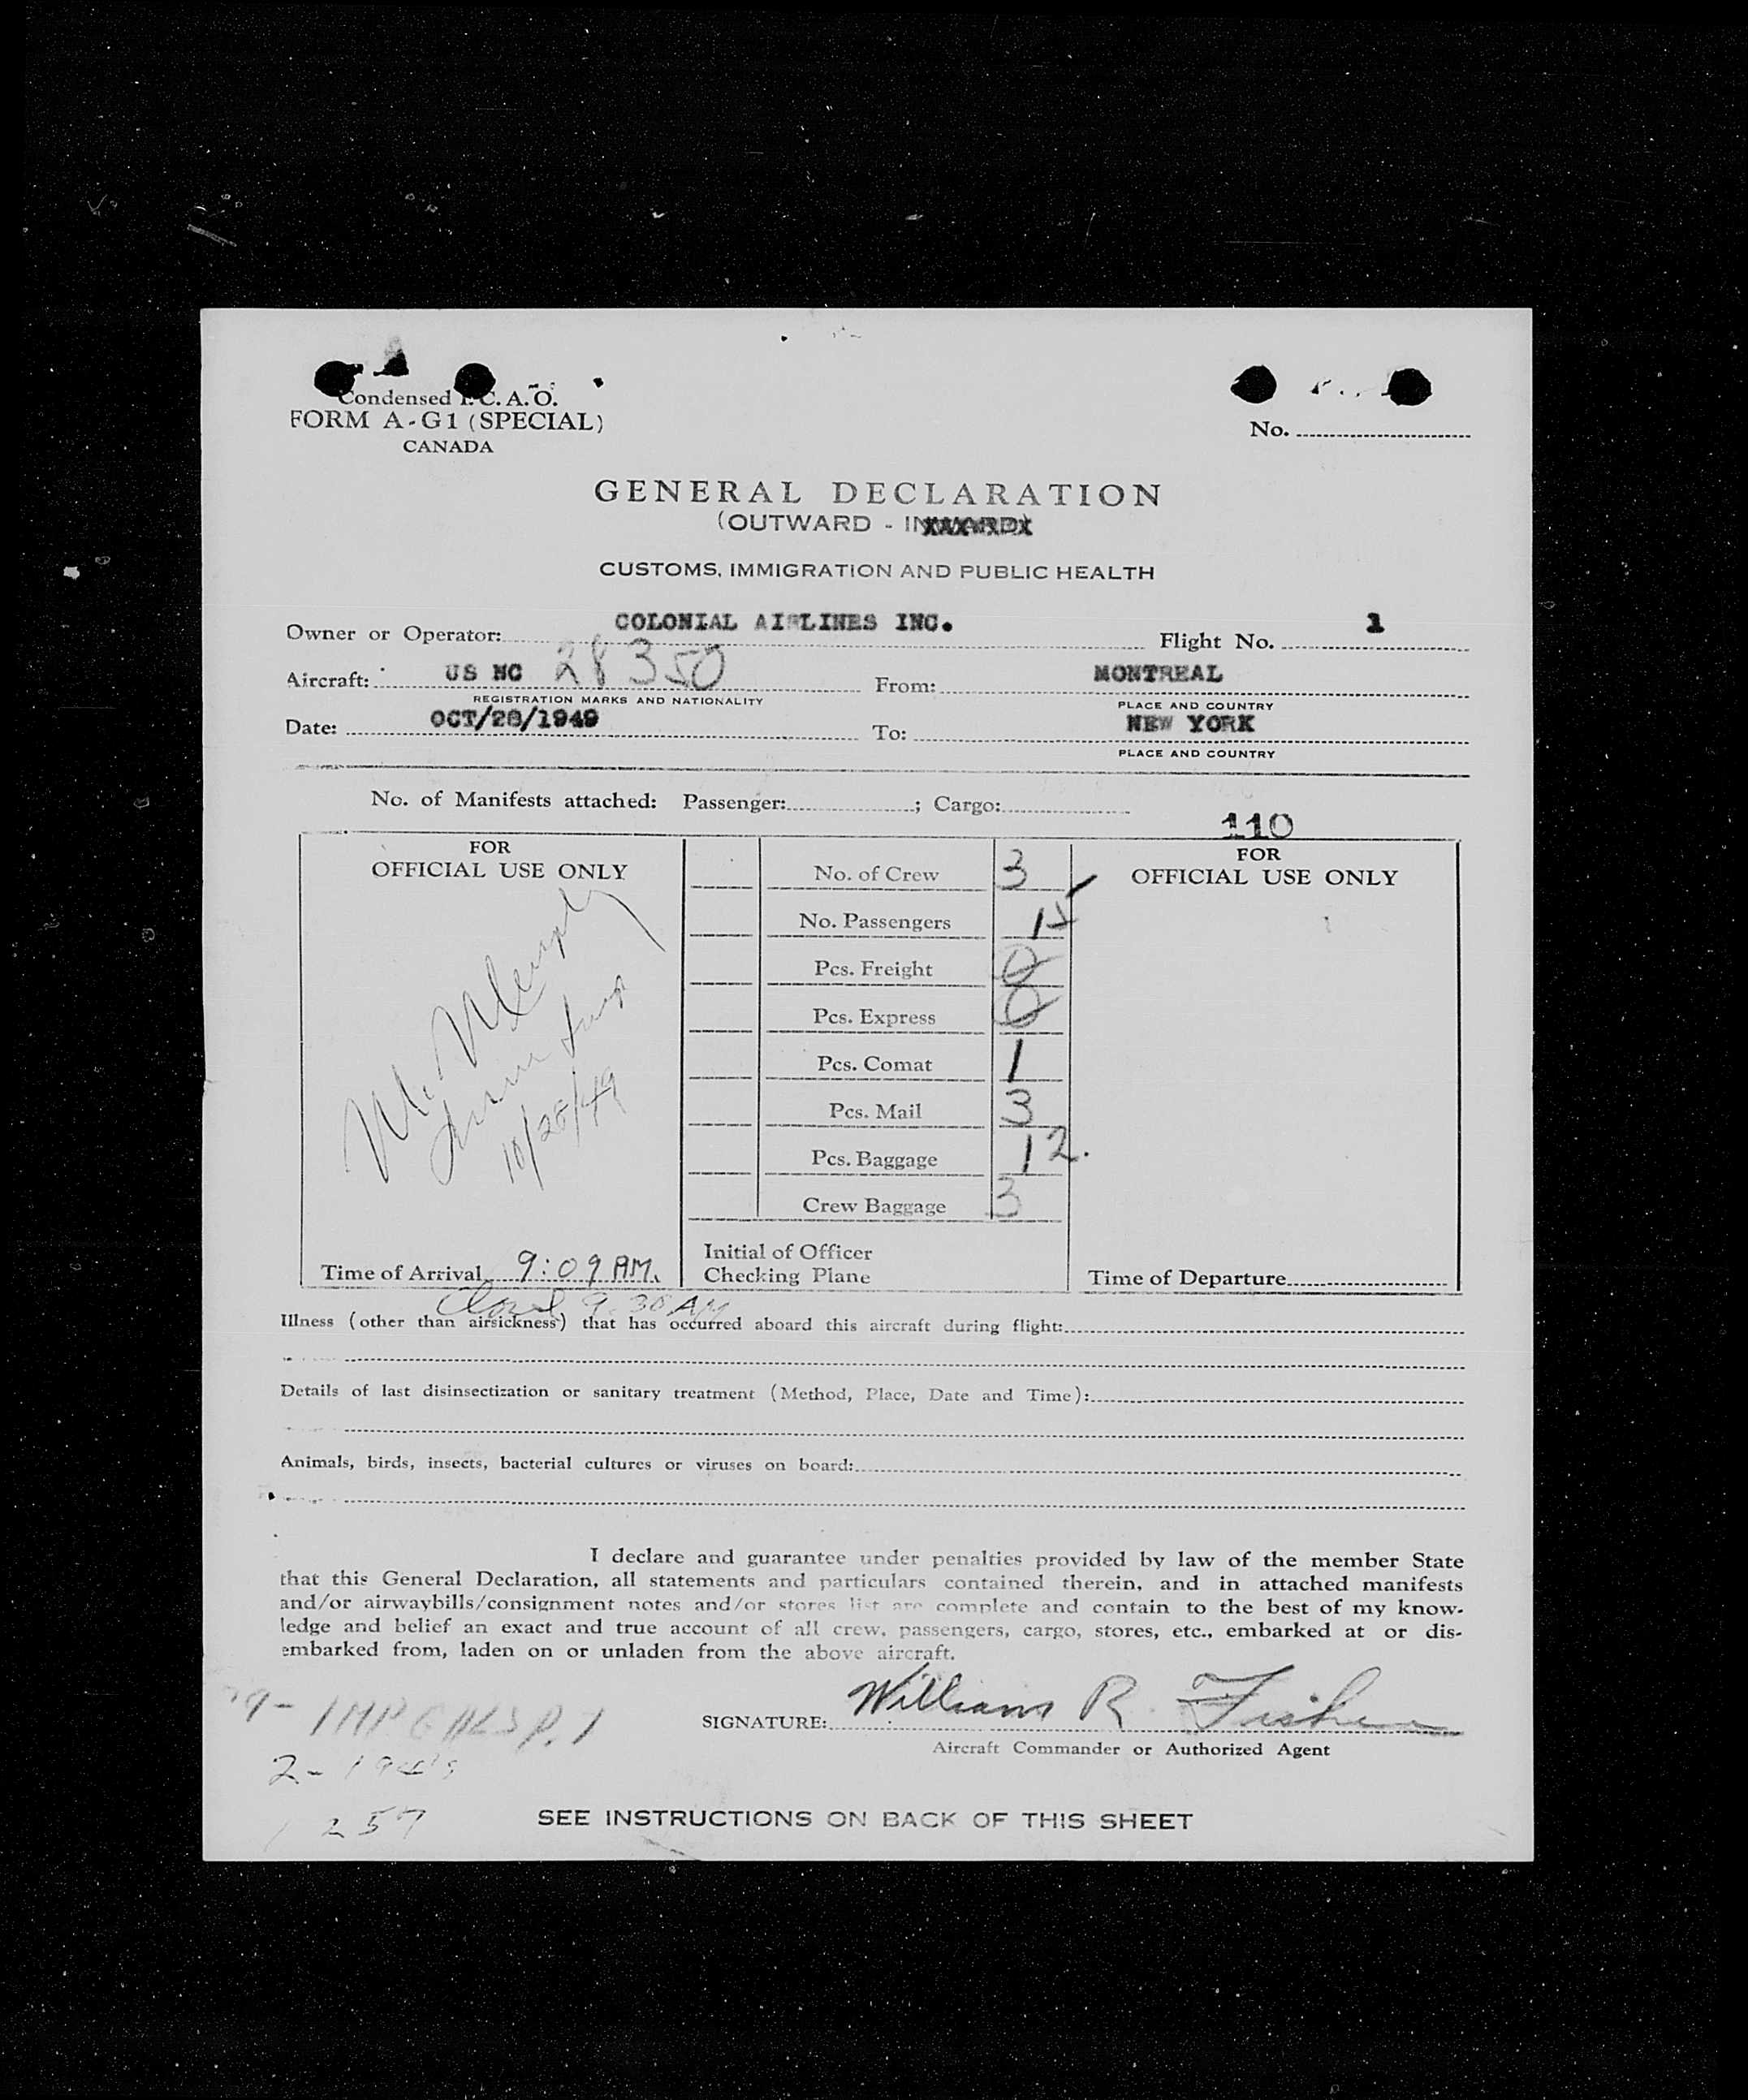 Condensed I.C.A.O.
FORM A-G1 (SPECIAL)
CANADA
No.
GENERAL DECLARATION
(OUTWARD - INXXXXXX
CUSTOMS, IMMIGRATION AND PUBLIC HEALTH
Owner or Operator: COLONIAL AIRLINES INC. Flight No. 1
Aircraft: US NC 28350 From: MONTREAL
REGISTRATION MARKS AND NATIONALITY PLACE AND COUNTRY
Date: OCT/28/1949 To: NEW YORK
PLACE AND COUNTRY
No. of Manifests attached: Passenger: ; Cargo:
110
FOR
OFFICIAL USE ONLY
M.
10/28/49
Time of Arrival 9:09 AM.
No. of Crew 3
No. Passengers 15
Pcs. Freight 0
Pcs. Express 0
Pcs. Comat 1
Pcs. Mail 3
Pcs. Baggage 12.
Crew Baggage 3
Initial of Officer
Checking Plane
FOR
OFFICIAL USE ONLY
Time of Departure
9:30 AM
Illness (other than airsickness) that has occurred aboard this aircraft during flight:
Details of last disinsectization or sanitary treatment (Method, Place, Date and Time):
Animals, birds, insects, bacterial cultures or viruses on board:
I declare and guarantee under penalties provided by law of the member State
that this General Declaration, all statements and particulars contained therein, and in attached manifests
and/or airwaybills/consignment notes and/or stores list are complete and contain to the best of my know-
ledge and belief an exact and true account of all crew, passengers, cargo, stores, etc., embarked at or dis-
embarked from, laden on or unladen from the above aircraft.
SIGNATURE: William R. Fisher
Aircraft Commander or Authorized Agent
257
SEE INSTRUCTIONS ON BACK OF THIS SHEET